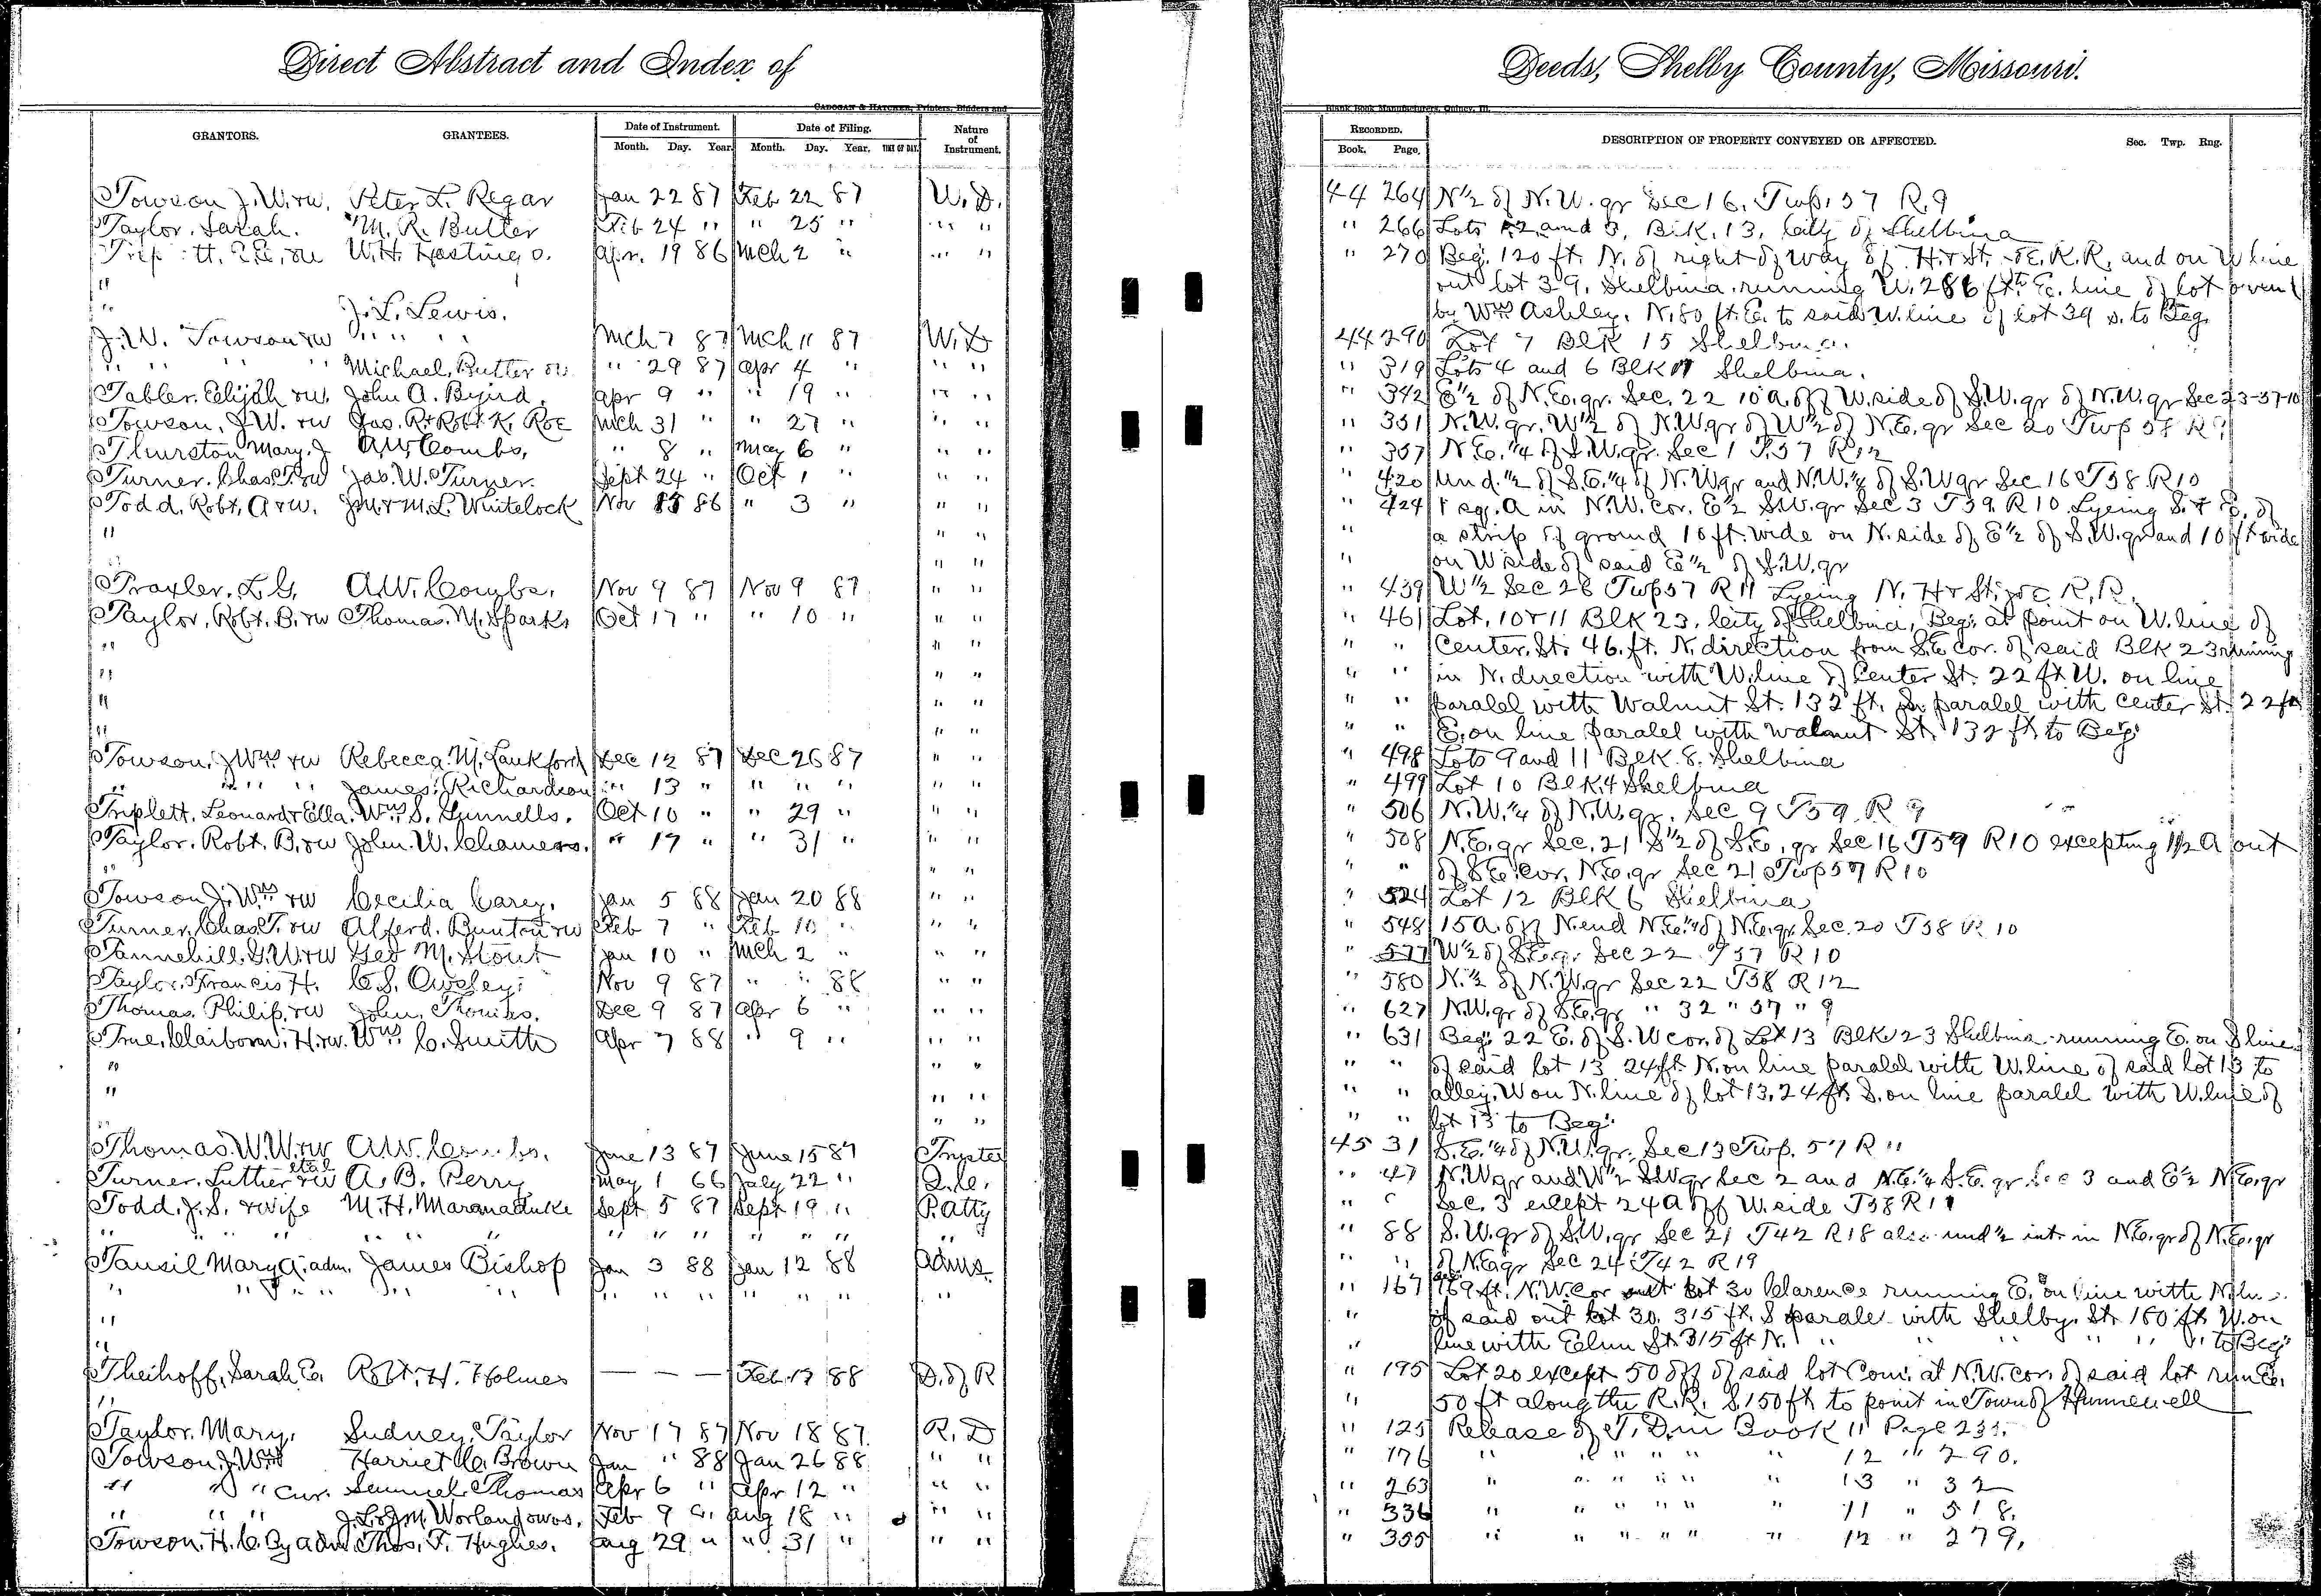 Direct Abstract and Index of
Deeds, Shelby County, Missouri.
CADOGAN & HATCHER, Printers, Binders and
Blank Book Manufacturers, Quincy, Ill.
GRANTORS. GRANTEES. Date of Instrument. Date of Filing. Nature of Instrument. RECORDED. DESCRIPTION OF PROPERTY CONVEYED OR AFFECTED. Sec. Twp. Rng.
Month. Day. Year. Month. Day. Year. TIME OF DAY. Book. Page.
Towson J. W. & w. Peter L. Regar Jan 22 87 Feb 22 87 W. D. 44 264 N ½ of N. W. qr Sec 16. Twp. 57 R. 9
Taylor, Sarah. M. R. Butler Feb 24 " " 25 " " " " 266 Lots 2 and 3, Blk. 13, City of Shelbina
W. H. Hastings. Apr. 19 86 Mch 2 " " " " 270 Beg. 120 ft. N. of right of way of H. & St. R. R. and on W line
" out lot 39, Shelbina running W. 286 ft. E. line of lot
" J. L. Lewis. by Wm Ashley, N. 80 ft. E. to said W. line of lot 39 S. to Beg.
J. W. Towson & w " " " Mch 7 87 Mch 11 87 W. D 44 290 Lot 7 Blk 15 Shelbina.
" " " Michael Butler " 29 87 Apr 4 " " " " 319 Lots 4 and 6 Blk Shelbina.
Tabler, Elijah & w. John A. Byird. Apr 9 " " 19 " " " " 342 E ½ of N. E. qr. Sec. 22 10 A. off W. side of S. W. qr of N. W. qr Sec 23-57-10
Towson, J. W. & w Jas. R. & Robt K. Roe Mch 31 " " 27 " " " " 351 N. W. qr. W ½ of N. W. qr of W ½ of N. E. qr Sec 20 Twp 58 R
Thurston Mary. J A. W. Combs. " 8 " May 6 " " " " 357 N. E. ¼ of S. W. qr. Sec 1 T. 57 R 12
Turner, Chas. T. & w Jas. W. Turner. Sept 24 " Oct 1 " " " " 420 Und. ½ of S. E. ¼ of N. W. qr and N. W. ¼ of S. W qr Sec 16 T 58 R 10
Todd, Robt. A & w. J. M. & M. L. Whitelock Nov 86 " 3 " " " " 424 1 sq. A in N. W. cor. E ½ S. W. qr Sec 3 T 59. R 10 Lyeing S. & E. of
" " " " a strip of ground 10 ft. wide on N. side of E ½ of S. W. qr and 10 ft wide
" " " on W side of said E ½ of S. W. qr
Traxler, L. G. A. W. Combs. Nov 9 87 Nov 9 87 " " " 439 W ½ Sec 26 Twp 57 R 11 Lyeing N. H & St. Joe R. R.
Taylor, Robt. B. & w Thomas. M. Sparks Oct 17 " " 10 " " " " 461 Lot, 10 & 11 Blk 23, City of Shelbina, Beg. at point on W. line of
" " " " " Center. St. 46. ft. N. direction from S. E cor. of said Blk 23 running
" " " " " in N. direction with W. line of Center St. 22 ft W. on line
" " " " " paralel with Walnut St. 132 ft. S. paralel with Center St. 22 ft
" " " " " E. on line paralel with Walnut St. 132 ft. to Beg.
Towson, J. Wm & w Rebecca. M. Lankford Dec 12 87 Dec 26 87 " " " 498 Lots 9 and 11 Blk. 8. Shelbina
" " " James Richardson " 13 " " " " " " " 499 Lot 10 Blk. 4 Shelbina
Triplett, Leonard & Ella. Wm S. Gunnells. Oct 10 " " 29 " " " " 506 N. W. ¼ of N. W. qr. Sec 9 T 59. R 9
Taylor, Robt. B. & w John. W. Chamers. " 17 " " 31 " " " " 508 N. E. qr Sec. 21 S ½ of S. E. qr Sec 16 T 59 R 10 excepting 1½ A out
" " " " " of S. E. cor. N. E. qr Sec 21 Twp 57 R 10
Towson J. Wm & w Cecilia Carey. Jan 5 88 Jan 20 88 " " " 524 Lot 12 Blk 6 Shelbina
Turner, Chas T. & w Alferd. Bunton & w Feb 7 " Feb 10 " " " " 548 15 A. off N. end N. E. ¼ of N. E. qr. Sec. 20 T 58 R 10
Tannehill, G. W. & w Geo M. Stout Jan 10 " Mch 2 " " " " 577 W ½ of S. E. qr. Sec 22 T 57 R 10
Taylor, Francis H. C. S. Owsley. Nov 9 87 " " 88 " " " 580 N. ½ of N. W. qr Sec 22 T 58 R 12
Thomas, Philip, & w John. Thomas. Dec 9 87 Apr 6 " " " " 627 N. W. qr of S. E. qr " 32 " 57 " 9
True, Claiborn. H. & w. Wm C. Smith Apr 7 88 " 9 " " " " 631 Beg. 22 E. of S. W cor. of Lot 13 Blk. 23 Shelbina running E. on S line
" " " " " of said lot 13 24 ft. N. on line paralel with W. line of said lot 13 to
" " " " " alley, W on N. line of lot 13, 24 ft. S. on line paralel with W. line of
" " " " " lot 13 to Beg.
Thomas. W. W. & w A. W. Combs. June 13 87 June 15 87 Trustee 45 31 S. E. ¼ of N. W. qr. Sec 13 Twp. 57 R 11
Turner, Luther et al & w A. B. Perry May 1 66 July 22 " Q. C. " 47 N. W qr and W ½ S. W. qr Sec 2 and N. E. ¼ S. E. qr. Sec 3 and E ½ N. E. qr
Todd, J. S. & wife M. H. Marmaduke Sept 5 87 Sept 19 " P. Atty " " Sec. 3 except 24 A off W. side T 58 R 11
" " " " " " " " " " " " " 88 S. W. qr of S. W. qr Sec 21 T 42 R 18 also und ½ int. in N. E. qr of N. E. qr
Tansil Mary A. adm. James Bishop Jan 3 88 Jan 12 88 Adms. " " of N. E. qr Sec 24 T 42 R 19
" " " " " " " " " " " " " 167 169 ft. N. W. cor out Lot 30 Clarence running E. on line with N. line
" " of said out lot 30, 315 ft. S paralel with Shelby. St. 180 ft W. on
" " line with Elm St. 315 ft N. " " " " " to Beg.
Theihoff, Sarah E. Robt. H. Holmes — — — Feb. 17 88 D. of R " 195 Lot 20 except 50 off of said lot Com. at N. W. cor. of said lot run E.
" " 50 ft along the R. R. S. 150 ft. to point in Town of Hunnewell
Taylor. Mary. Sudney. Taylor Nov 17 87 Nov 18 87. R. D " 125 Release of T. D. in Book 11 Page 233.
Towson J. Wm Harriet C. Brown Jan " 88 Jan 26 88 " " " 176 " " " " " " 12 " 290.
" " " Cur. Samuel Thomas Apr 6 " Apr 12 " " " " 263 " " " " " " 13 " 32
" " " J. L. & J. M. Worland Feb 9 " Aug 18 " " " " 336 " " " " " " 11 " 518.
Towson. H. C. By adm. Thos. F. Hughes. Aug 29 " " 31 " " " " 355 " " " " " " 12 " 279.